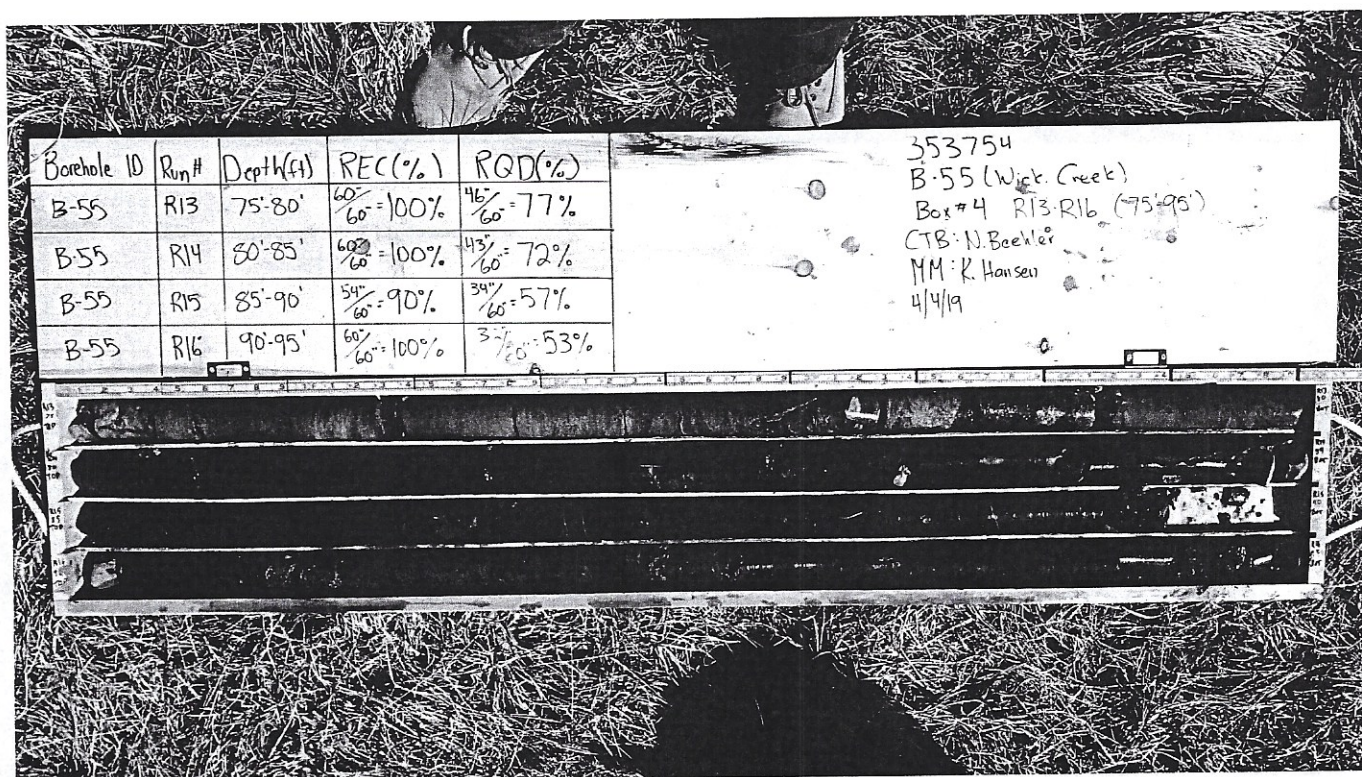 Borehole ID Run# Depth(ft) REC(%) RQD(%)
B-55 R13 75'-80' 60"/60"=100% 46"/60"=77%
B-55 R14 80'-85' 60"/60"=100% 43"/60"=72%
B-55 R15 85'-90' 54"/60"=90% 34"/60"=57%
B-55 R16 90'-95' 60"/60"=100% =53%
353754
B-55 (Wick. Creek)
Box #4 R13-R16 (75'-95')
CTB: N. Beehler
MM: K. Hansen
4/4/19